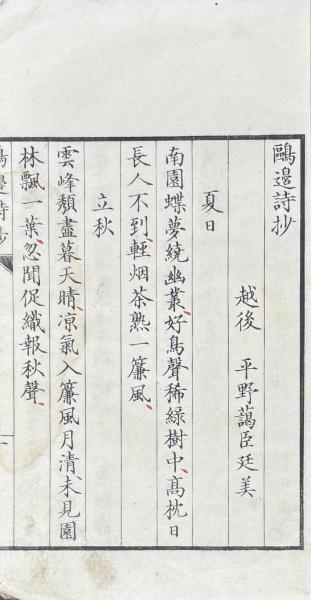 鷗邉詩抄
越後 平野藹臣廷美
夏日
南園蝶夢繞幽叢好鳥聲稀綠樹中高枕日
長人不到輕烟茶熟一簾風
立秋
雲峰頽盡暮天晴凉氣入簾風月清未見園
林飄一葉忽聞促織報秋聲